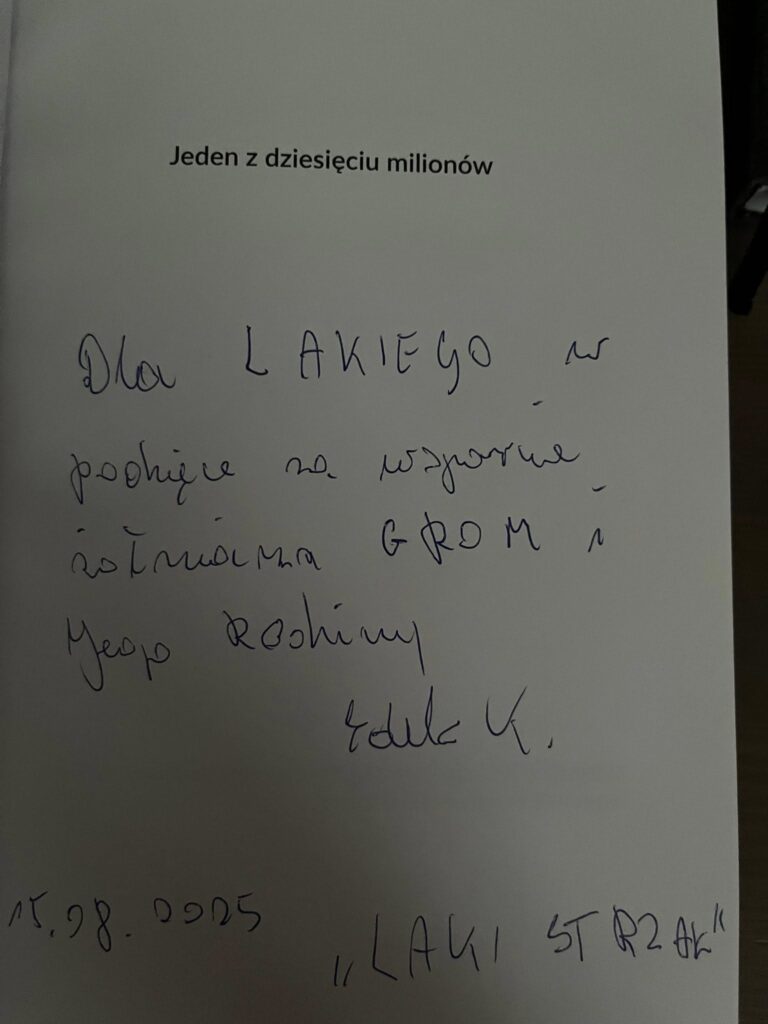 Jeden z dziesięciu milionów
Dla LAKIEGO w
podzięce za wsparcie
żołnierza GROM i
Jego Rodziny
Edek K.
15.08.2025
„LAKI STRZAŁ”